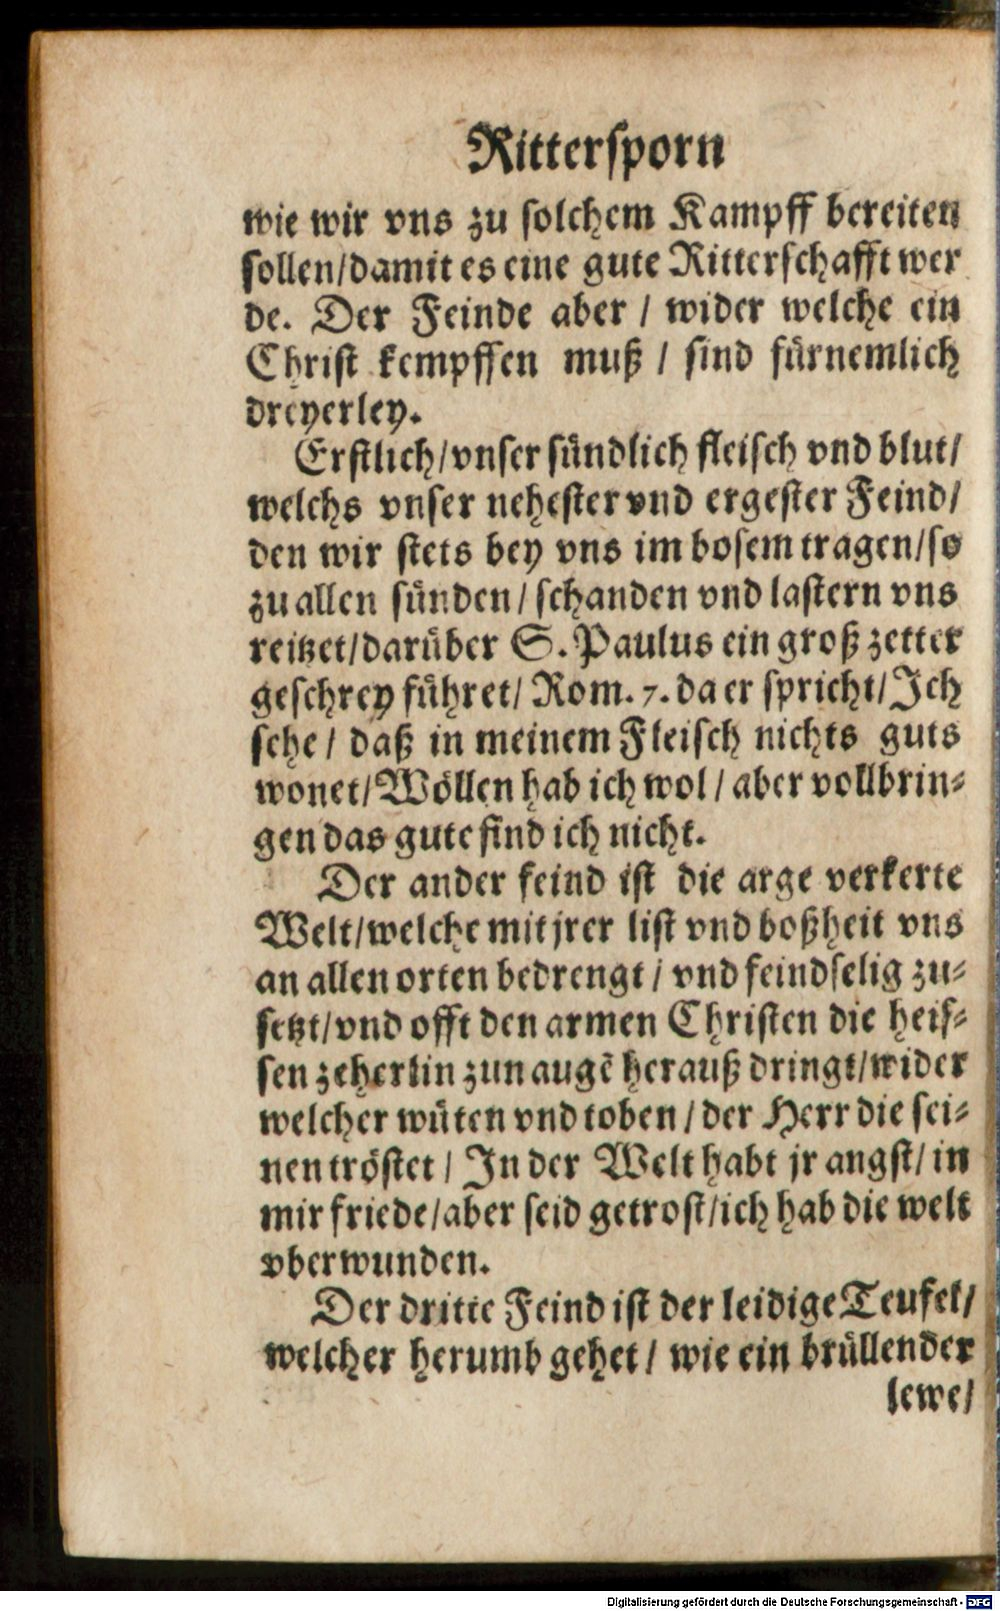 Ritterſporn
wie wir vns zu ſolchem Kampff bereiten
ſollen/damit es eine gute Ritterſchafft wer
de. Der Feinde aber / wider welche ein
Chriſt kempffen muß / ſind fürnemlich
dreyerley.
Erſtlich/vnſer ſündlich fleiſch vnd blut/
welchs vnſer neheſter vnd ergeſter Feind/
den wir ſtets bey vns im boſem tragen/ſo
zu allen ſünden/ſchanden vnd laſtern vns
reitzet/darüber S. Paulus ein groß zetter
geſchrey führet/ Rom. 7. da er ſpricht/Ich
ſehe / daß in meinem Fleiſch nichts guts
wonet/Wöllen hab ich wol / aber vollbrin⸗
gen das gute find ich nicht.
Der ander feind iſt die arge verkerte
Welt/welche mit jrer liſt vnd boßheit vns
an allen orten bedrengt / vnd feindſelig zu⸗
ſetzt/vnd offt den armen Chriſten die heiſ⸗
ſen zeherlin zun augē herauß dringt/wider
welcher wüten vnd toben / der Herr die ſei⸗
nen tröſtet / In der Welt habt jr angſt/ in
mir friede/aber ſeid getroſt/ich hab die welt
vberwunden.
Der dritte Feind iſt der leidige Teufel/
welcher herumb gehet / wie ein brüllender
lewe/
Digitalisierung gefördert durch die Deutsche Forschungsgemeinschaft - DFG